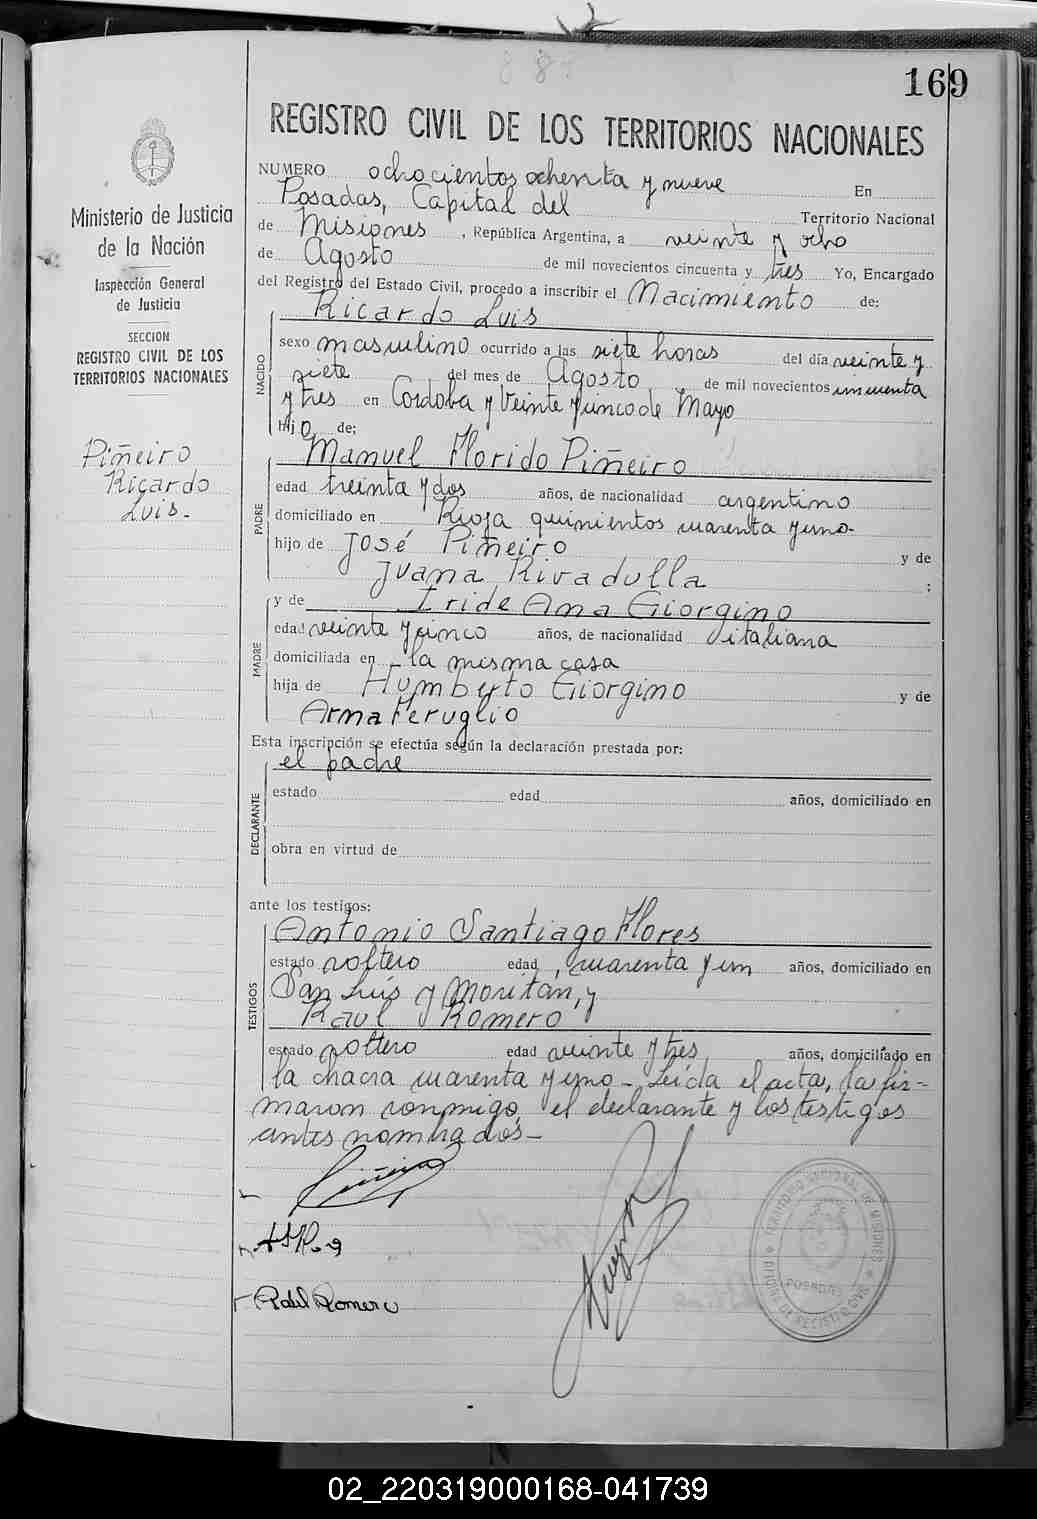 169
REGISTRO CIVIL DE LOS TERRITORIOS NACIONALES
Ministerio de Justicia
de la Nación
Inspección General
de Justicia
SECCION
REGISTRO CIVIL DE LOS
TERRITORIOS NACIONALES
Piñeiro
Ricardo
Luis.-
NUMERO ochocientos ochenta y nueve En
Posadas, Capital del Territorio Nacional
de Misiones, República Argentina, a veinte y ocho
de Agosto de mil novecientos cincuenta y tres Yo, Encargado
del Registro del Estado Civil, procedo a inscribir el Nacimiento de:
NACIDO
Ricardo Luis
sexo masculino ocurrido a las siete horas del día veinte y
siete del mes de Agosto de mil novecientos cincuenta
y tres en Córdoba y Veinte y cinco de Mayo
Hijo de:
PADRE
Manuel Florido Piñeiro
edad treinta y dos años, de nacionalidad argentino
domiciliado en Rioja quinientos cuarenta y uno-
hijo de José Piñeiro y de
Juana Rivadulla ;
MADRE
y de Iride Ana Giorgino
edad veinte y cinco años, de nacionalidad italiana
domiciliada en la misma casa
hija de Humberto Giorgino y de
Feruglio
Esta inscripción se efectúa según la declaración prestada por:
DECLARANTE
el padre
estado edad años, domiciliado en
obra en virtud de
ante los testigos:
TESTIGOS
Antonio Santiago Flores
estado soltero edad, cuarenta y un años, domiciliado en
San Luis y Moritan, y
Raul Romero
estado soltero edad veinte y tres, años, domiciliado en
la chacra cuarenta y uno - Leída el acta, la fir-
maron conmigo, el declarante y los testigos
antes nombrados.-
Piñeiro
Raul Romero
TERRITORIO NACIONAL DE MISIONES
POSADAS
OFICINA DE REGISTRO CIVIL
02_220319000168-041739